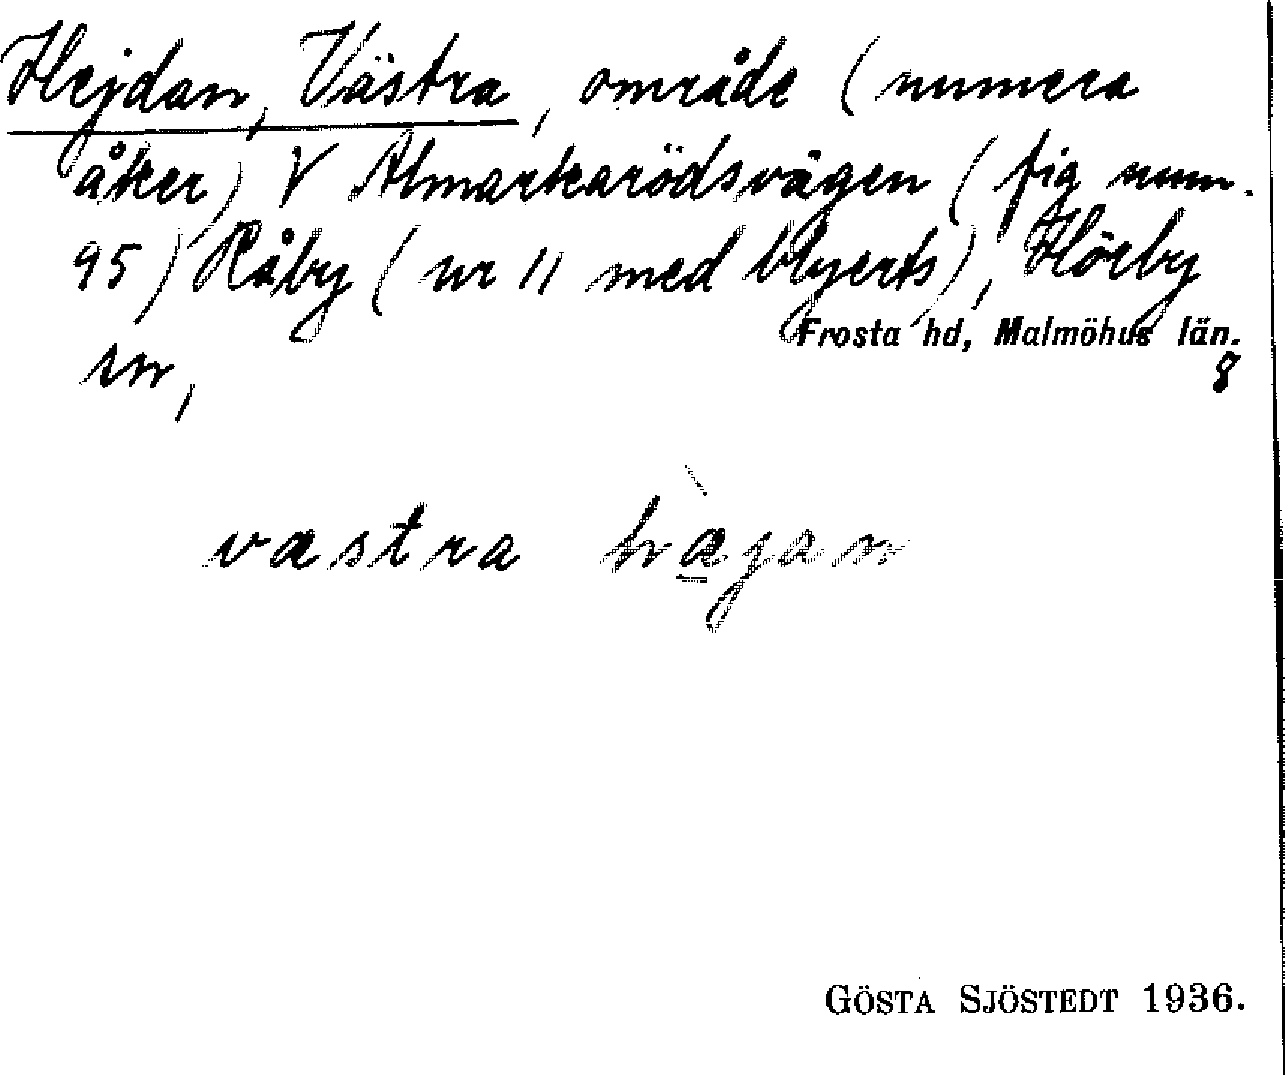 Hejdan, Västra, område (numera
åker) V Almarkarödsvägen (fig num.
95) Råby (nr 11 med blyerts), Hörby
sn,
Frosta hd, Malmöhus län.
8
væstra hæ̀jan
GÖSTA SJÖSTEDT 1936.